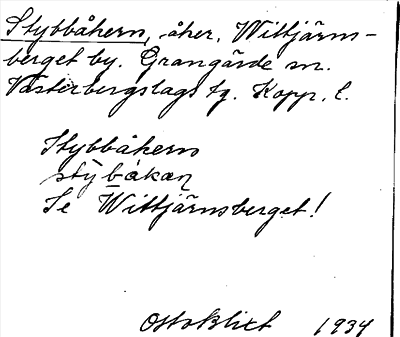 Stybbåkern, åker, Wittjärns-
berget by. Grangärde sn.
Västerbergslags tg. Kopp. l.
Stybbåkern
stỳbåkaṇ
Se Wittjärnsberget!
Otto Blixt 1934